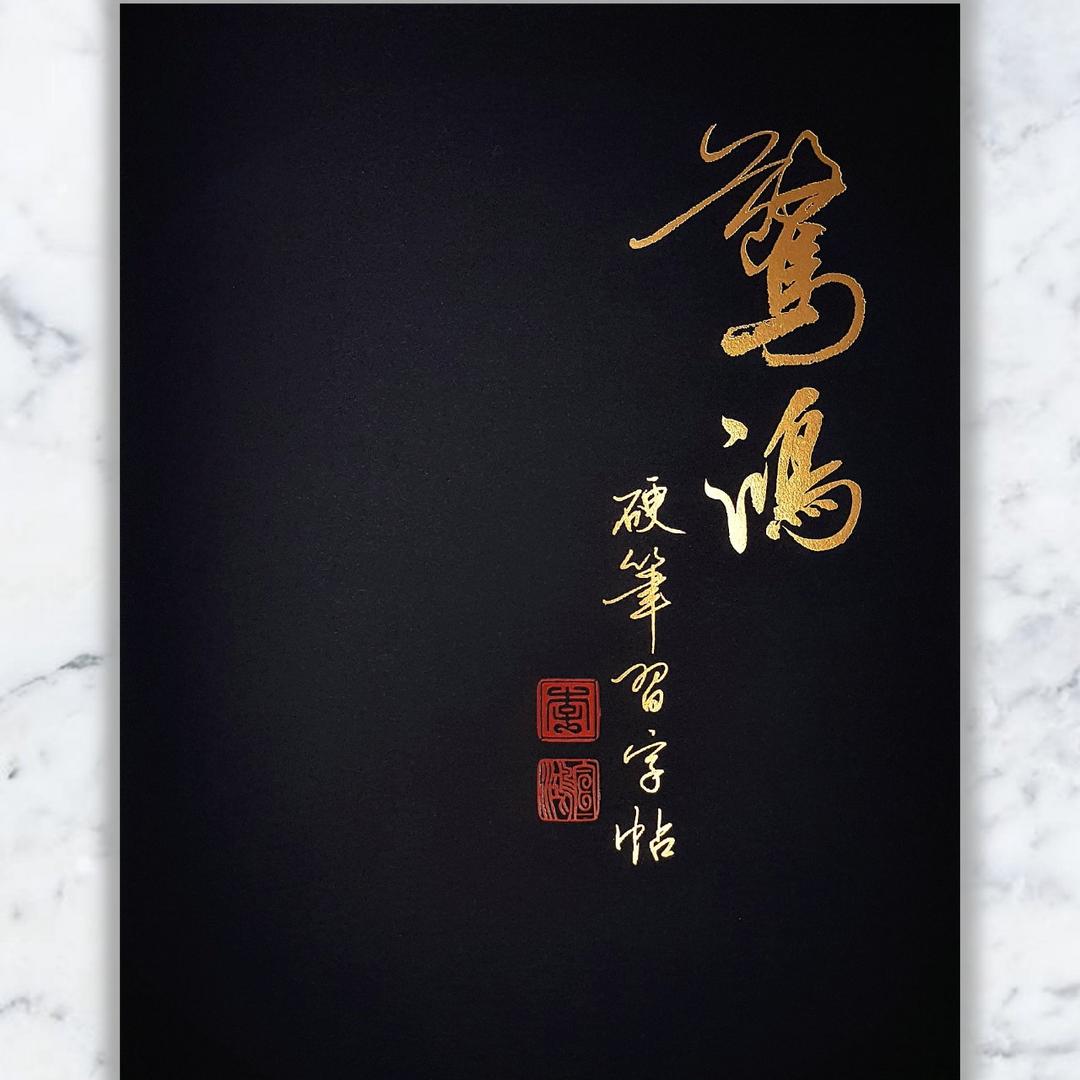 驚鴻
硬筆習字帖